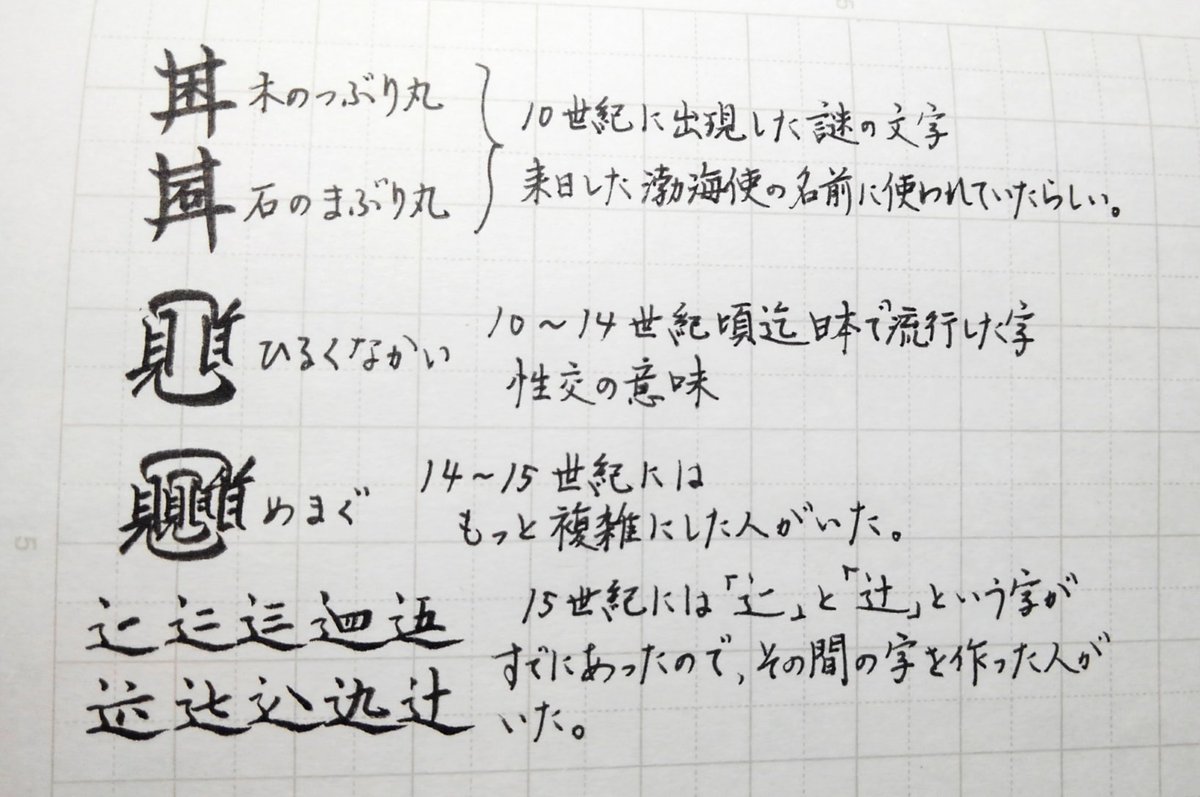 木のつぶり丸
石のまぶり丸
10世紀に出現した謎の文字
来日した渤海使の名前に使われていたらしい。
ひるくなかい
10～14世紀頃迄日本で流行した字
性交の意味
めまぐ
14～15世紀には
もっと複雑にした人がいた。
15世紀には「辷」と「辻」という字が
すでにあったので、その間の字を作った人が
いた。